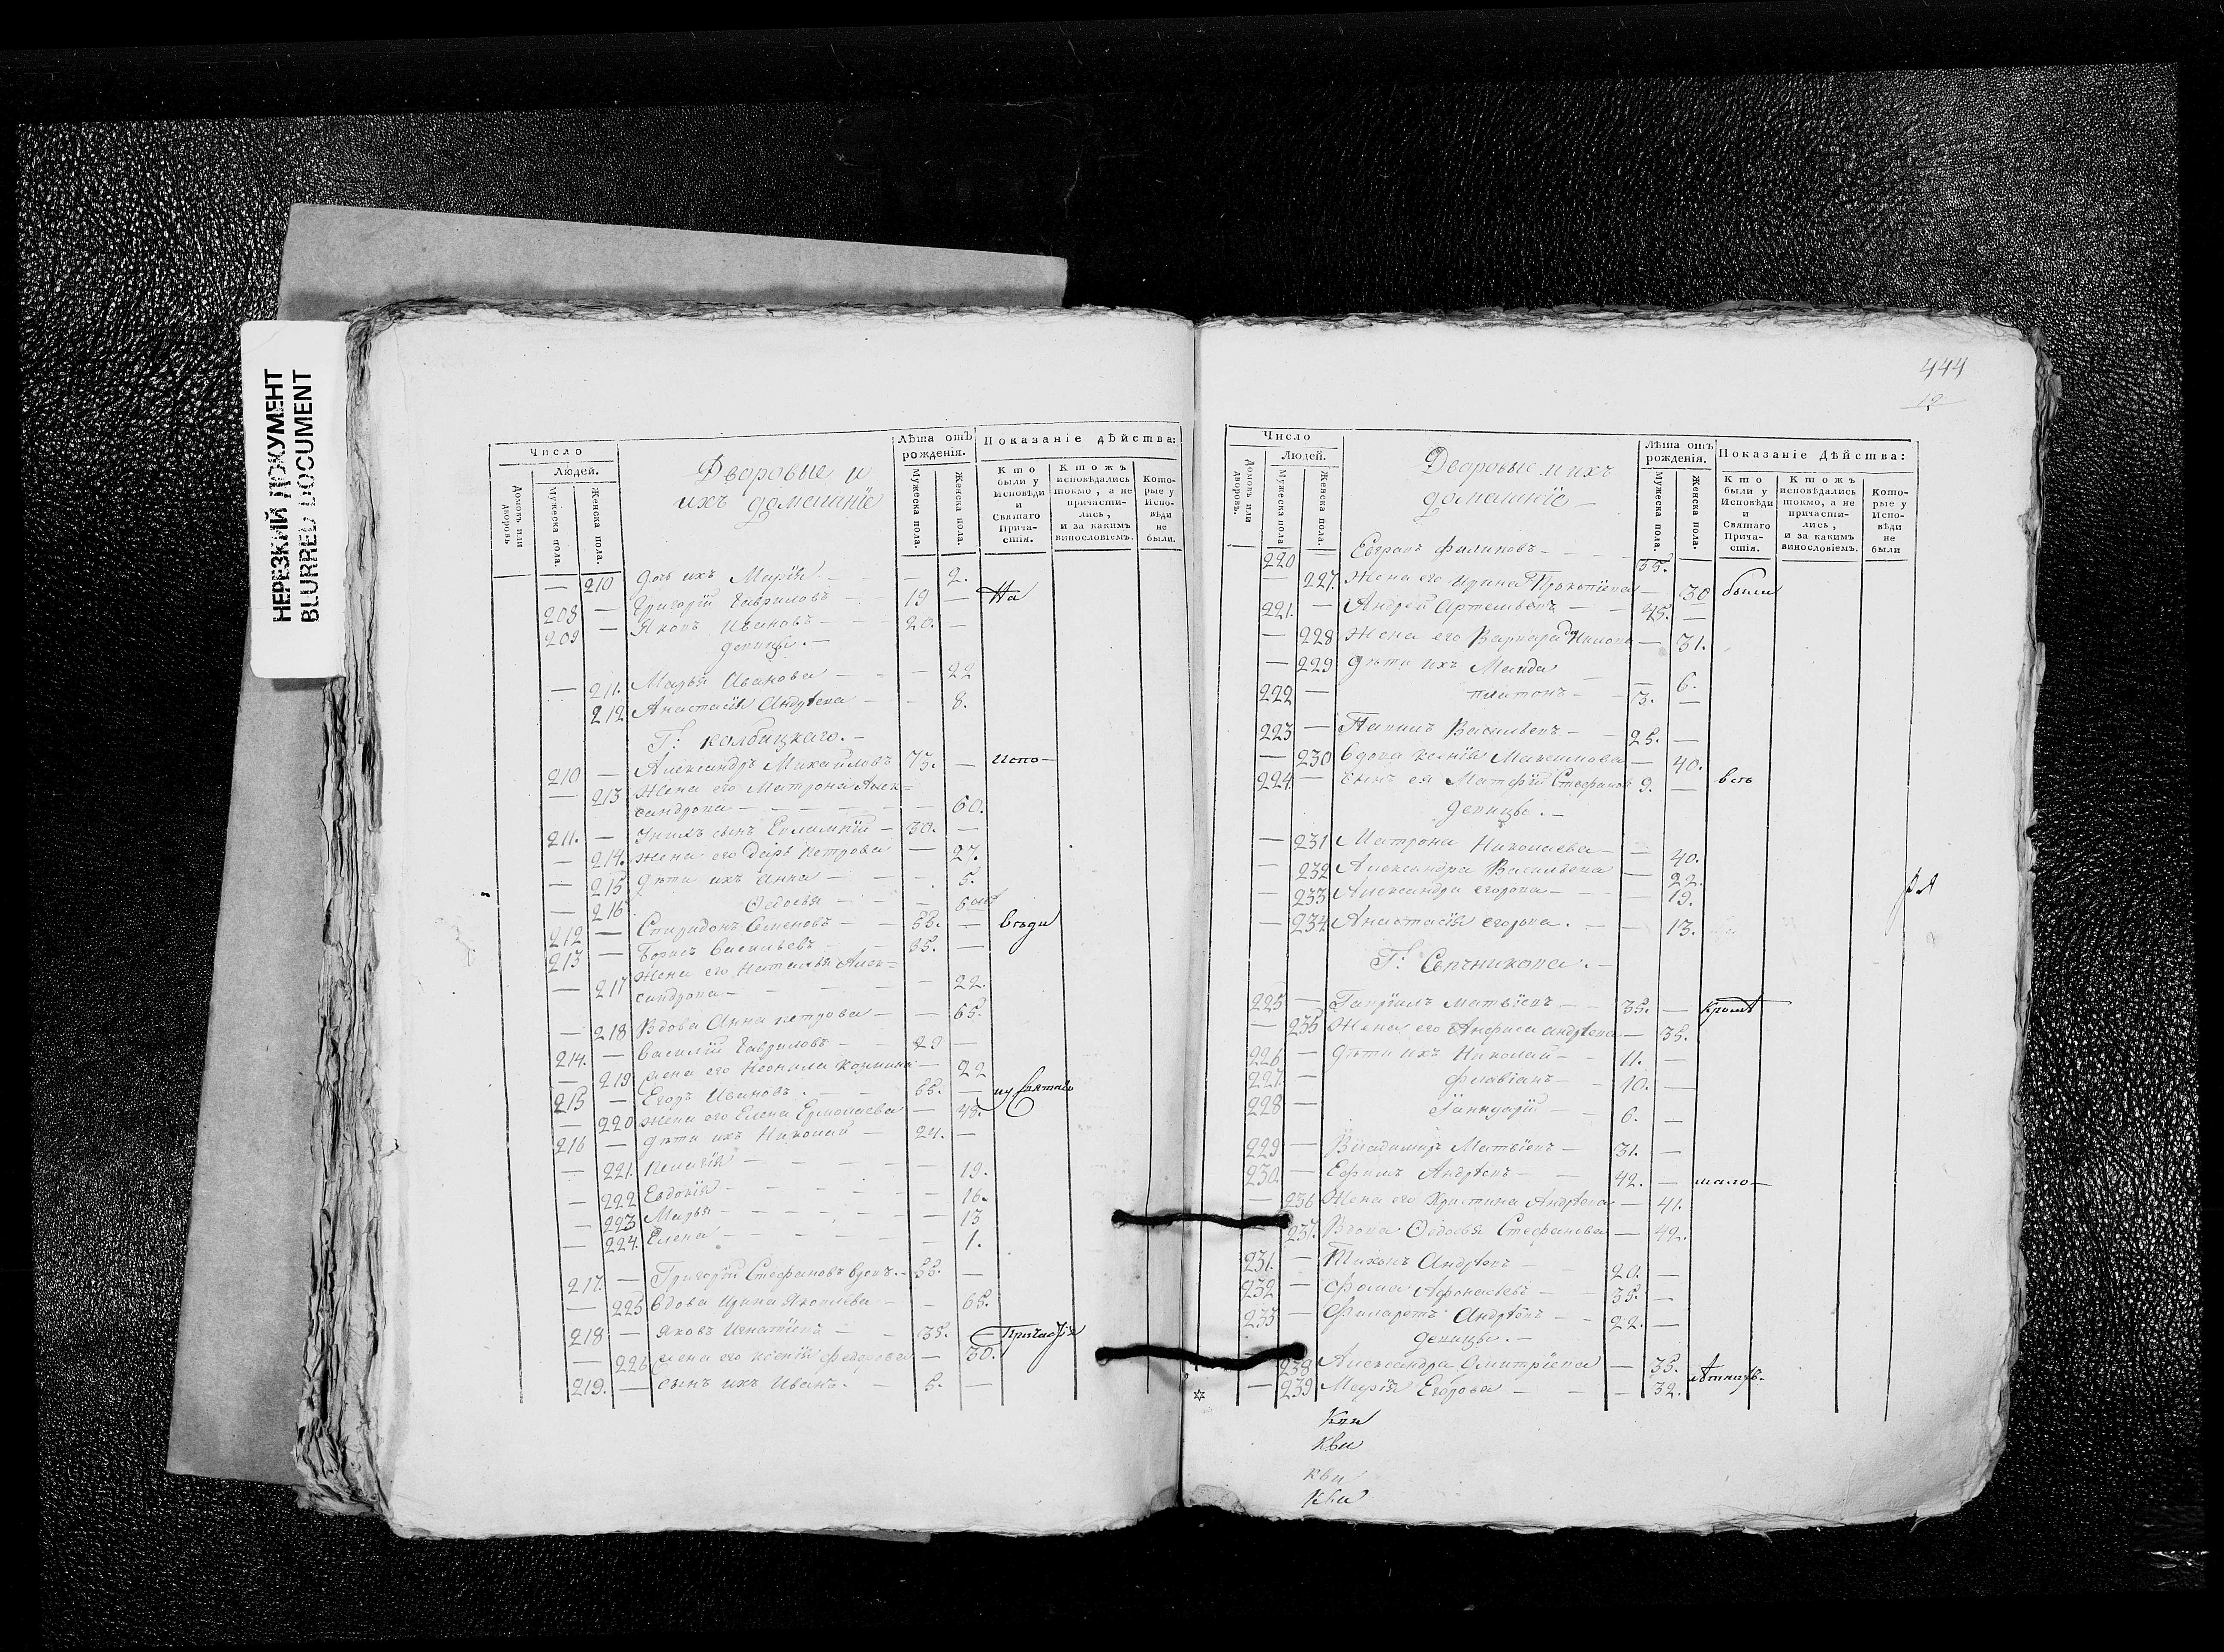 НЕРЕЗКИЙ ДОКУМЕНТ
BLURRED DOCUMENT
Число
Людей.
Домовъ или дворовъ
Мужеска пола.
Женска пола.
Дворовые и
ихъ домашніе
Лѣта отъ рожденія.
Мужеска пола.
Женска пола.
Показаніе дѣйства:
Кто были у Исповѣди и Святаго Прича-стія.
Ктожъ исповѣдались токмо, а не причасти-лись, и за какимъ винословіемъ.
Кото-рые у Испо-вѣди не были.
— 210 Дочь ихъ Марія — — 2.
208 — Григорій Гавриловъ — 19 — На
209 — Яковъ Ивановъ — 20. —
девицы. —
— 211. Марья Иванова — — 22
212 Анастасія Андрѣева — — 8.
Г: Колбицкаго. —
210 — Александръ Михайловъ 73. — испо—
— 213 Жена его Матрона Алек=
сандрова — — 60.
211. — У нихъ сынъ Евлампій — 30. —
— 214. Жена его Дарья Петрова — 27.
— 215 Дѣти ихъ Анна — — 5.
— 216 Ѳедосья — —
212 — Спиридонъ Семеновъ — 53. — вѣди
213 — Борисъ Васильевъ — 35. —
— 217 Жена его Наталья Алек=
сандрова — — 22.
— 218 Вдова Анна Петрова — — 65.
214. — Василій Гавриловъ — 29 —
— 219 Жена его Неонила Козмина — 22
215 — Егоръ Ивановъ. — 55. — и у святаго
— 220 Жена его Елена Ермолаева — 48.
216 — Дѣти ихъ Николай — 24. —
— 221. Пелагія — — 19.
— 222 Евдокія — — 16.
— 223 Марья — — 13
— 224. Елена — — 1.
217. — Григорій Стефановъ вдовъ. — 53. —
— 225 Вдова Ирина Яковлева — — 65.
218 — Яковъ Игнатіевъ — 35. Причастія
— 226 Жена его Ксенія Федорова — 30.
219. — Сынъ ихъ Иванъ. — 5. —
444
12
Число
Людей.
Домовъ или дворовъ.
Мужеска пола
Женска пола.
Дворовые и ихъ
домашніе —
Лѣта отъ рожденія.
Мужеска пола.
Женска пола.
Показаніе Дѣйства:
Кто были у Исповѣди и Святаго Прича-стія.
Ктожъ исповѣдались токмо, а не причасти-лись, и за какимъ винословіемъ.
Кото-рые у Испо-вѣди не были
220 — Евграфъ Филиповъ — 35.
— 227. Жена его Ирина Прокопіева — 30 были
221. — Андрей Артемьевъ — 45. —
— 228 Жена его Варвара — 31.
— 229 Дѣти ихъ — 6.
222 — Платонъ — 3. —
223 — Васильевъ — 25. —
— 230 Вдова Ксенія Максимова — 40.
224. — Сынъ ея Матфій Стефановъ 9. — всѣ
девицы. —
— 231 Матрона Николаева — — 40.
— 232 Александра Васильева — 22.
— 233 Александра Егорова — — 19.
— 234 Анастасія Егорова. — — 13.
Г: Свечникова. —
225 — Гавріилъ Матвіевъ — 35. — Кромѣ
— 235 Жена его Анфиса Андрѣева — 35.
226 — Дѣти ихъ Николай — 11. —
227. — Флавіанъ — 10. —
228 — Іаннуарій — 6. —
229 — Владимиръ Матвіевъ — 31. —
230. — Ефимъ Андрѣевъ — 42. — мало—
— 236 Жена его Христина Андрѣева — 41.
237. Вдова Ѳедосья Стефанова — 42.
231. — Тихонъ Андрѣевъ — 20. —
232 — Фома Афонасьевъ — 35. —
233 — Филаретъ Андрѣевъ — 22. —
девицы. —
238 Александра Дмитріева — 35. лѣтнихъ.
— 239 Марія Егорова — — 32.